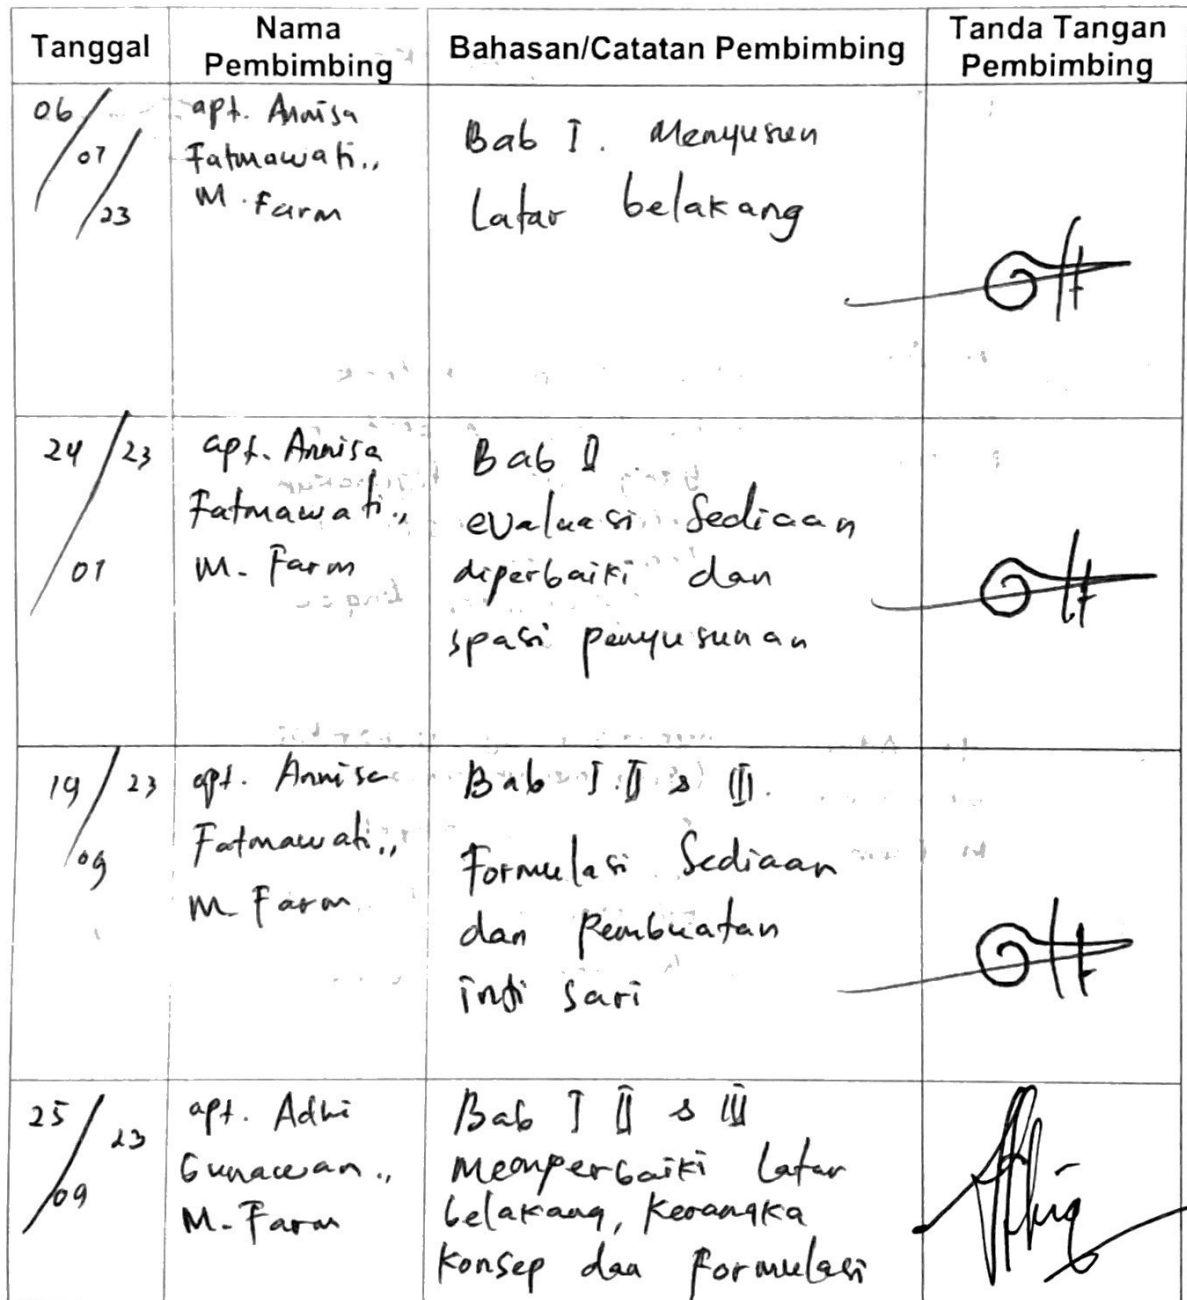 Tanggal
Nama
Pembimbing
Bahasan/Catatan Pembimbing
Tanda Tangan
Pembimbing
06/07/23
apt. Annisa
Fatmawati.,
M. Farm
Bab I. Menyusun
Latar belakang
24/01/23
apt. Annisa
Fatmawati.,
M. Farm
Bab II
evaluasi Sediaan
diperbaiki dan
spasi penyusunan
19/09/23
apt. Annisa
Fatmawati.,
M. Farm
Bab I II & III.
Formulasi Sediaan
dan Pembuatan
inti sari
25/09/23
apt. Adhi
Gunawan.,
M. Farm
Bab I II & III
Memperbaiki Latar
belakang, Kerangka
Konsep dan Formulasi